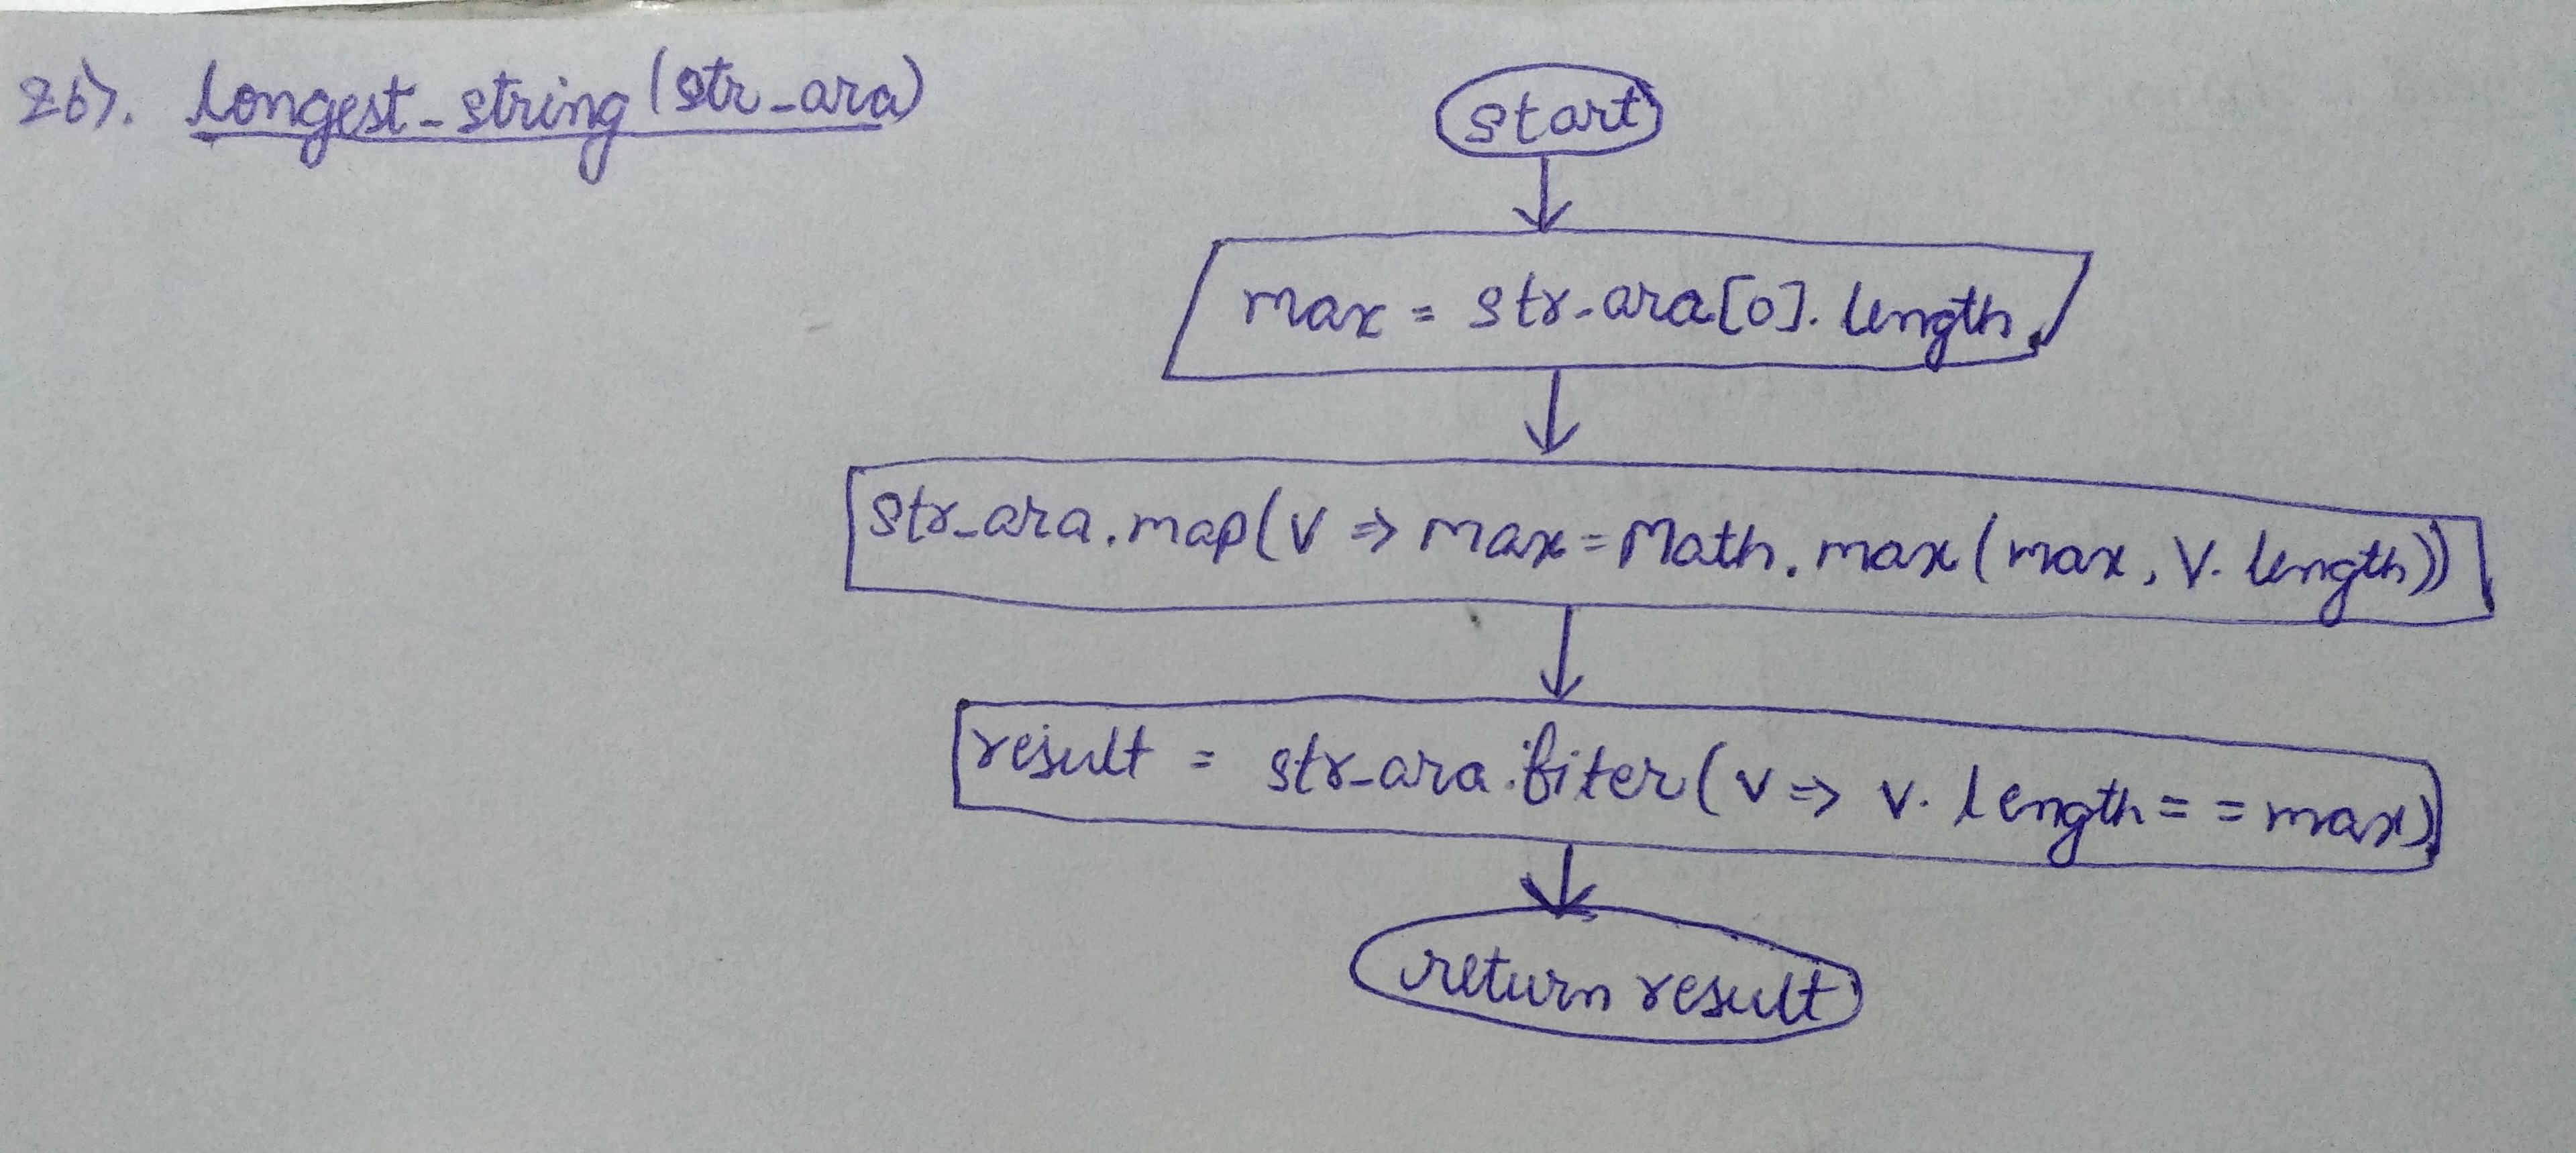 26). longest_string(str_ara)
start
max = str_ara[0].length
str_ara.map(v => max=Math.max(max, v.length))
result = str_ara.fiter(v => v.length==max)
return result